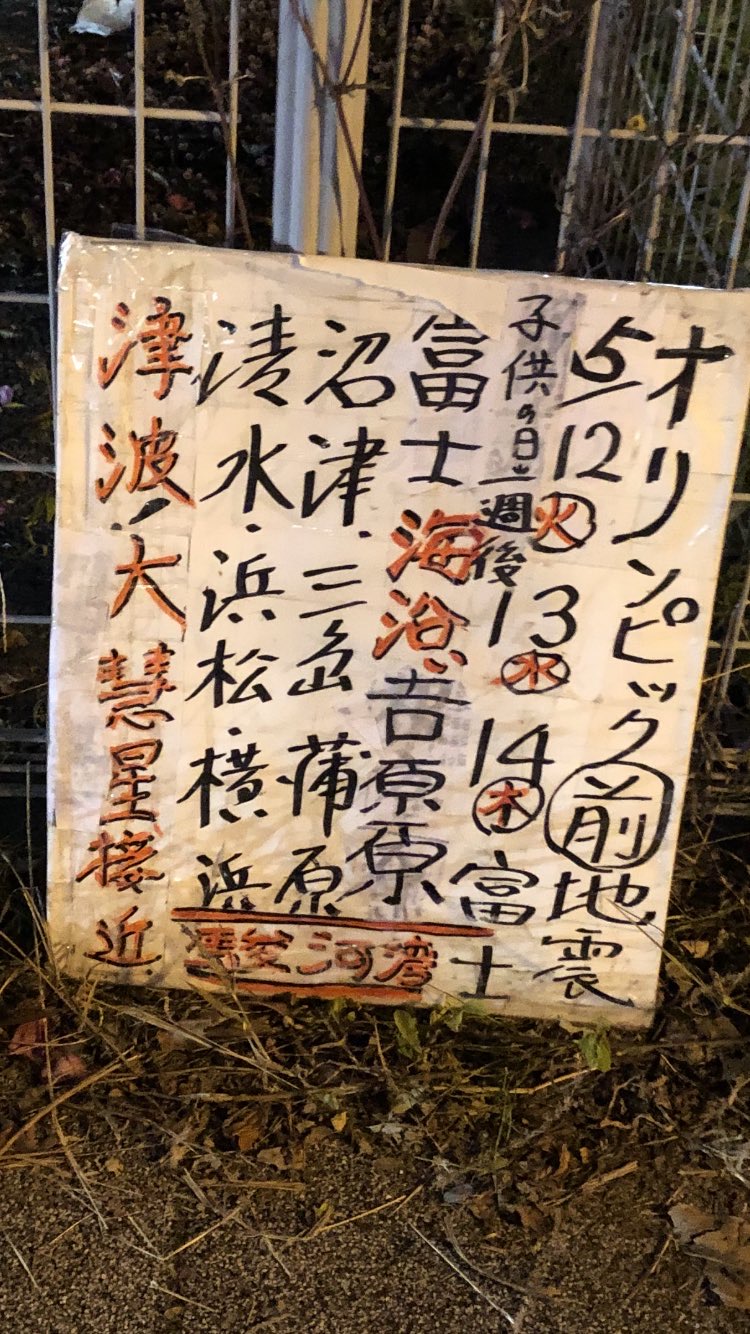 オリンピック前地震
5/12火13水14木富士
子供の日一週後
富士海沿い吉原原
沼津・三島蒲原
清水・浜松・横浜
津波!大慧星接近
駿河湾